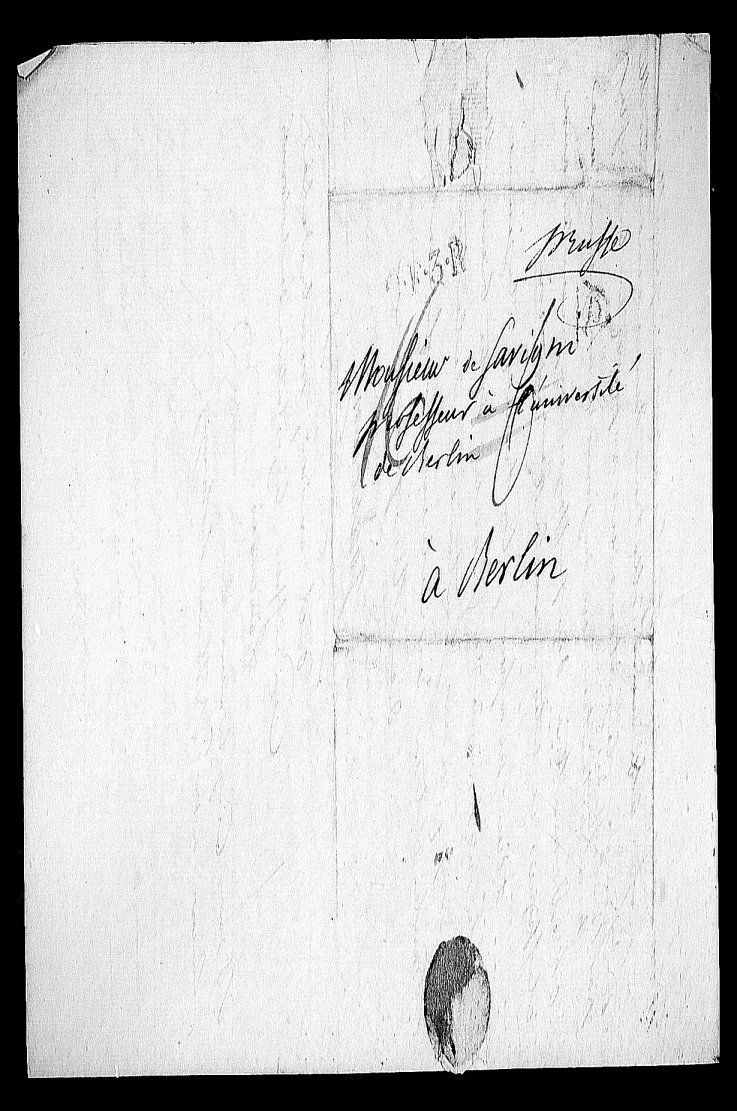 prusse
Monsieur de Savigni
professeur à l'université
de Berlin
à Berlin